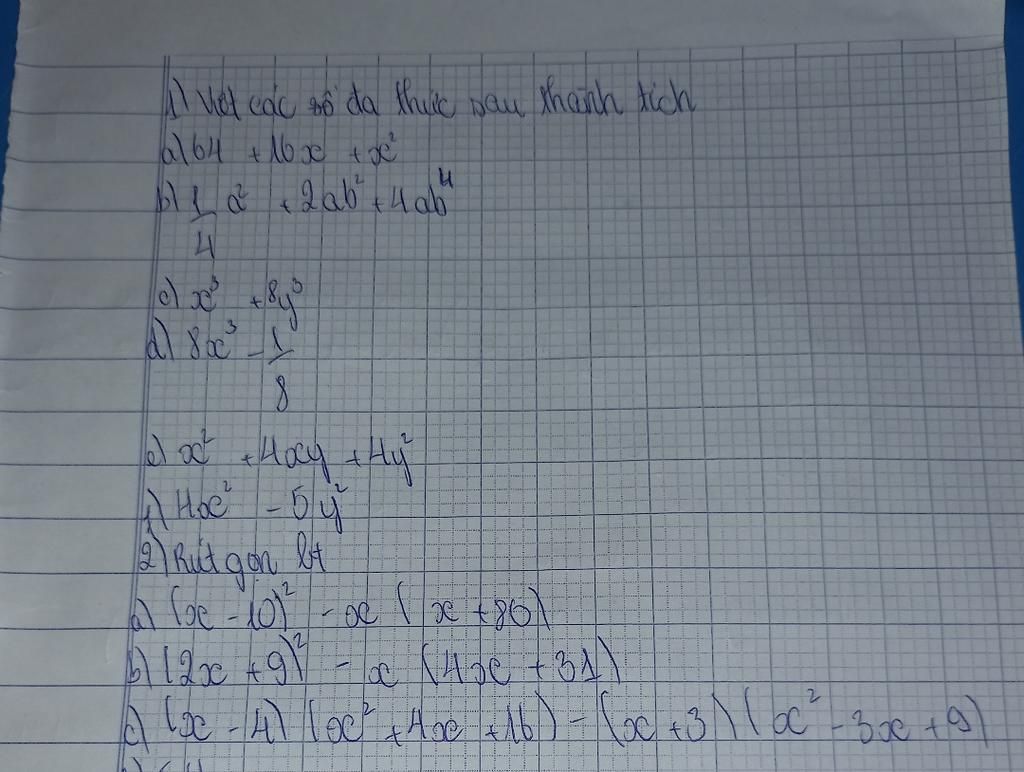 1) Viết các số đa thức sau thành tích
a) 64 + 16x + x²
b) 1/4 a² + 2ab² + 4ab⁴
c) x³ + 8y³
d) 8x³ - 1/8
e) x² + 4xy + 4y²
f) 4x² - 5y²
2) Rút gọn bt
a) (x - 10)² - x (x + 80)
b) (2x + 9)² - x (4x + 31)
c) (x - 4) (x² + 4x + 16) - (x + 3) (x² - 3x + 9)